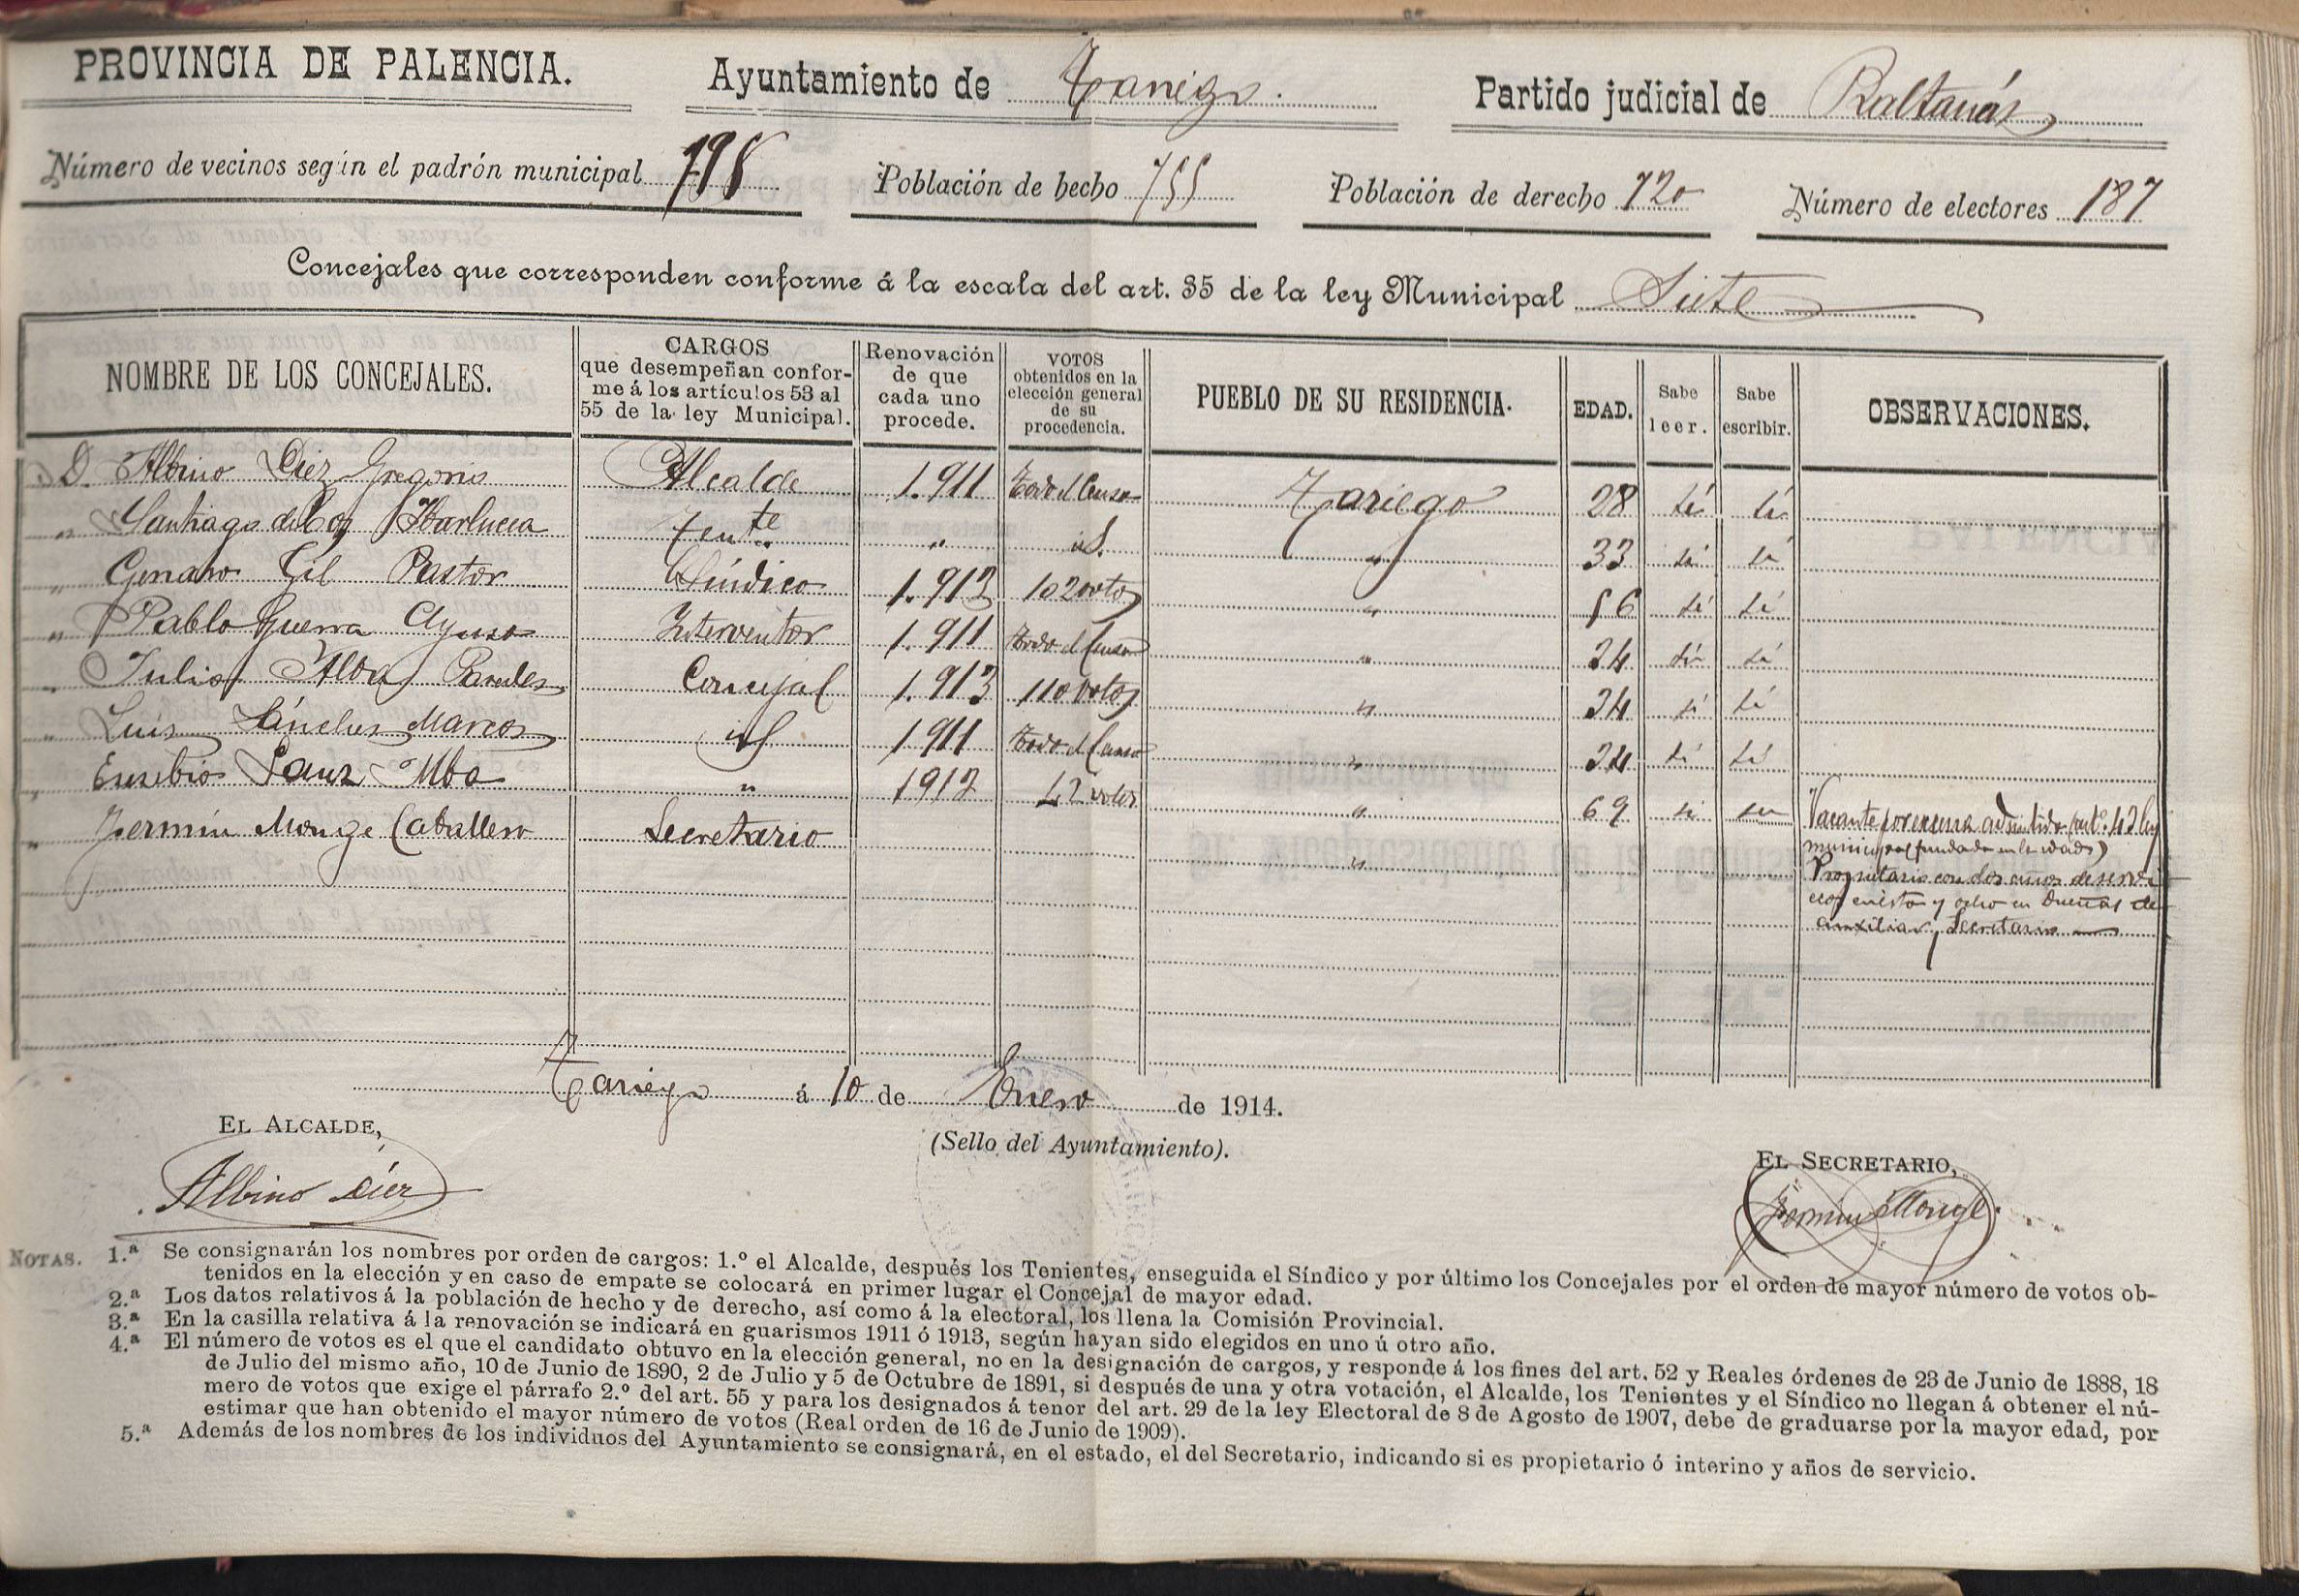 PROVINCIA DE PALENCIA. Ayuntamiento de Tariego. Partido judicial de Baltanás
Número de vecinos según el padrón municipal 198 Población de hecho 755 Población de derecho 720 Número de electores 187
Concejales que corresponden conforme á la escala del art. 35 de la ley Municipal Siete
NOMBRE DE LOS CONCEJALES. CARGOS que desempeñan confor- me á los artículos 53 al 55 de la ley Municipal. Renovación de que cada uno procede. VOTOS obtenidos en la elección general de su procedencia. PUEBLO DE SU RESIDENCIA. EDAD. Sabe leer. Sabe escribir. OBSERVACIONES.
D. Albino Diez Gregorio Alcalde 1.911 Todo el Censo Tariego 28 sí sí
" Santiago de Coz Ibarlucea Tente " id. " 33 si si
" Genaro Gil Pastor Síndico 1.913 102 votos " 56 sí sí
" Pablo Guerra Ayuso Interventor 1.911 Todo el Censo " 34 si si
" Julio Alba Paredes Concejal 1.913 110 votos " 34 si si
" Luis Sánchez Marcos id 1911 Todo el Censo " 34 si si
" Eusebio Sanz Alba " 1913 42 votos " 69 si si Vacante por excusa admitida (artº. 43 ley
municipal fundada en la edad)
" Fermín Monge Caballero Secretario " Propietario con dos años de servi-
cios en esta y ocho en Dueñas de
auxiliar y Secretario
Tariego á 10 de Enero de 1914.
EL ALCALDE,
(Sello del Ayuntamiento).
EL SECRETARIO,
Albino Diez
Fermín Monge
NOTAS. 1.ª Se consignarán los nombres por orden de cargos: 1.º el Alcalde, después los Tenientes, enseguida el Síndico y por último los Concejales por el orden de mayor número de votos ob-
tenidos en la elección y en caso de empate se colocará en primer lugar el Concejal de mayor edad.
2.ª Los datos relativos á la población de hecho y de derecho, así como á la electoral, los llena la Comisión Provincial.
3.ª En la casilla relativa á la renovación se indicará en guarismos 1911 ó 1913, según hayan sido elegidos en uno ú otro año.
4.ª El número de votos es el que el candidato obtuvo en la elección general, no en la designación de cargos, y responde á los fines del art. 52 y Reales órdenes de 23 de Junio de 1888, 18
de Julio del mismo año, 10 de Junio de 1890, 2 de Julio y 5 de Octubre de 1891, si después de una y otra votación, el Alcalde, los Tenientes y el Síndico no llegan á obtener el nú-
mero de votos que exige el párrafo 2.º del art. 55 y para los designados á tenor del art. 29 de la ley Electoral de 8 de Agosto de 1907, debe de graduarse por la mayor edad, por
estimar que han obtenido el mayor número de votos (Real orden de 16 de Junio de 1909).
5.ª Además de los nombres de los individuos del Ayuntamiento se consignará, en el estado, el del Secretario, indicando si es propietario ó interino y años de servicio.